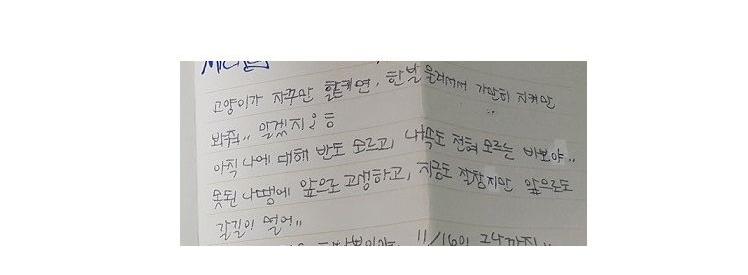 고양이가 자꾸만 할퀴면, 한발 물러서서 가만히 지켜만
봐줘,, 알겠지 응
아직 나에 대해 반도 모르고, 내속도 전혀 모르는 바보야,,
못된 나땜에 앞으로 고생하고, 지금도 막장지만 앞으로도
갈길이 멀어,,
11/16이 그나까지